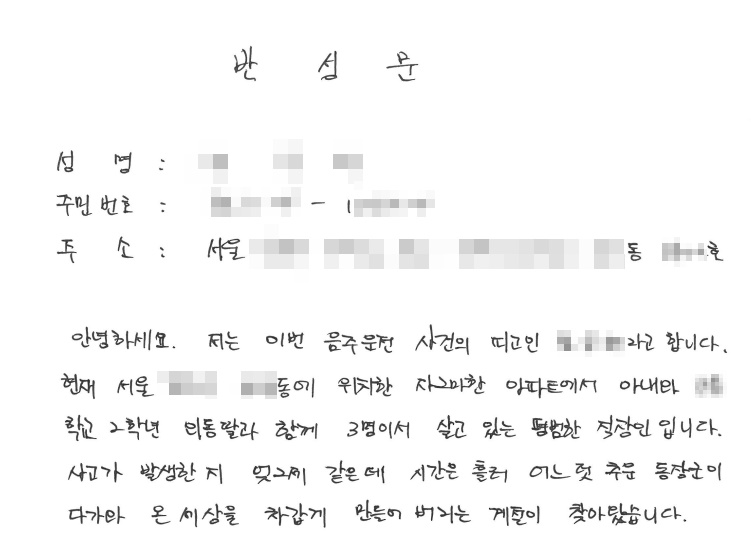 반 성 문
성 명 :
주민번호 : - 1
주 소 : 서울 동 호
안녕하세요. 저는 이번 음주운전 사건의 피고인 라고 합니다.
현재 서울 동에 위치한 자그마한 아파트에서 아내와
학교 2학년 외동딸과 함께 3명이서 살고 있는 평범한 직장인입니다.
사고가 발생한 지 엊그제 같은데 시간은 흘러 어느덧 추운 동장군이
다가와 온 세상을 차갑게 만들어 버리는 계절이 찾아왔습니다.